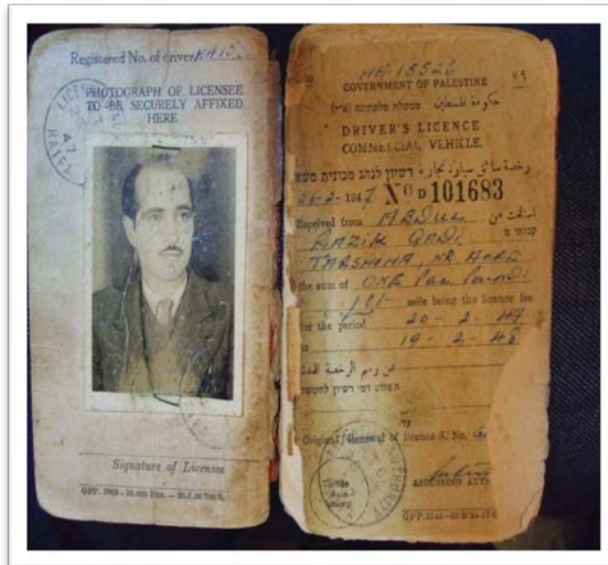 Registered No. of driver HA15
PHOTOGRAPH OF LICENSEE
TO BE SECURELY AFFIXED
HERE
47
HAIFA
Signature of Licensee
HA-15526
GOVERNMENT OF PALESTINE
٧٩
حكومة فلسطين ממשלת פלשתינה (א״י)
DRIVER'S LICENCE
COMMERCIAL VEHICLE.
رخصة سائق سيارة تجارية רשיון לנהג מכונית משא
26-2-1947 No D 101683
Received from ABDUL استلمت من
RAZIK QADI קבלתי מ
TARSHIHA, NR ACRE
the sum of ONE Pal. Pound
mils being the licence fee
for the period 20-2-47
to 19-2-48
عن رسم الرخصة
Original/Renewal of licence S. No.
AUTHORITY
LICENSING AUTH